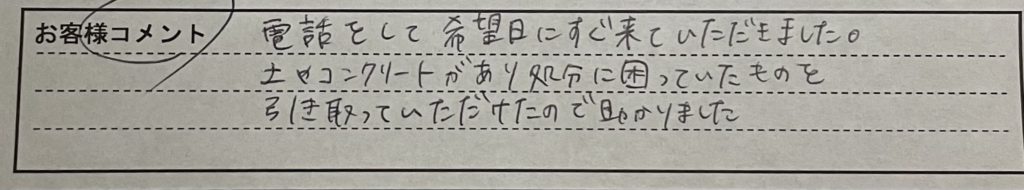 お客様コメント 電話をして希望日にすぐ来ていただきました。
土やコンクリートがあり処分に困っていたものを
引き取っていただけたので助かりました